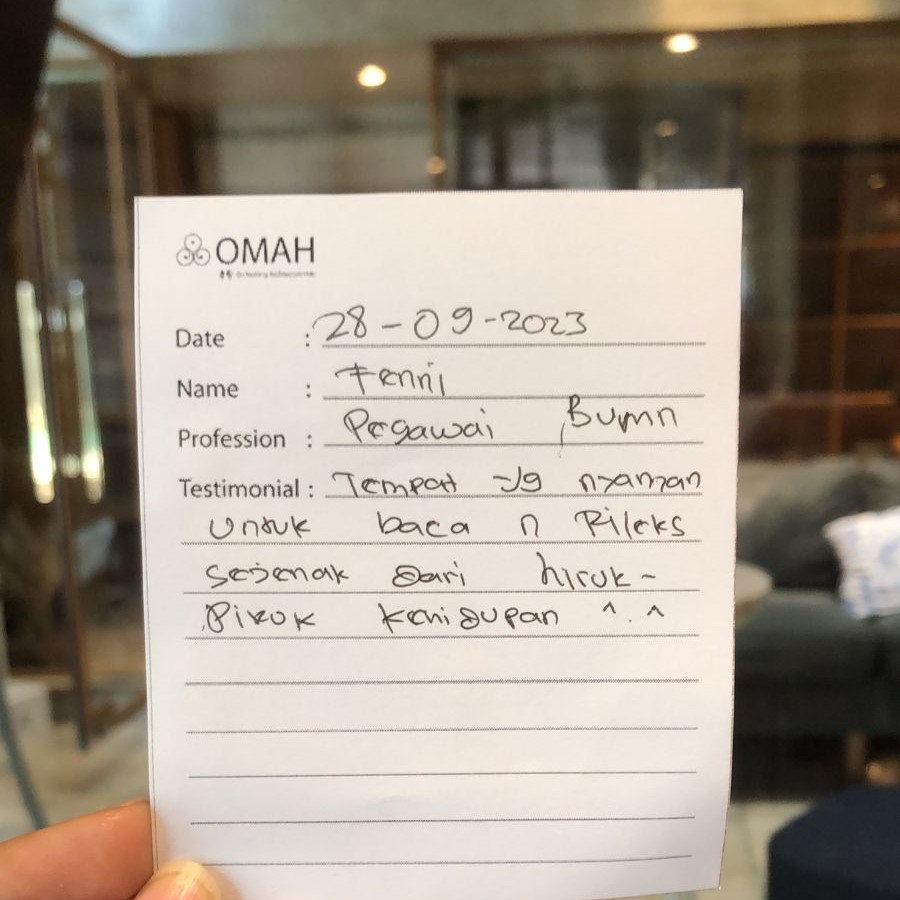 OMAH
Date : 28-09-2023
Name : Fenni
Profession : Pegawai BUMN
Testimonial : Tempat yg nyaman
untuk baca n Rileks
sejenak dari hiruk-
pikuk kehidupan ^.^